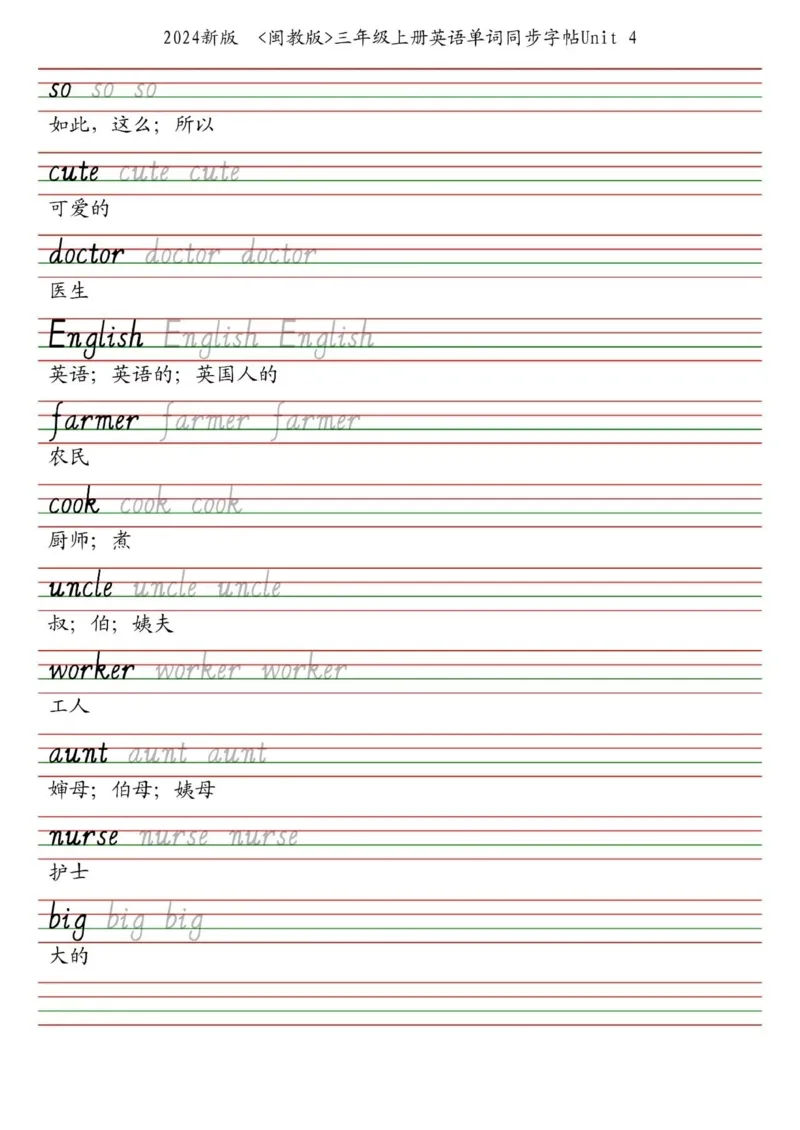 2024新版 <闽教版>三年级上册英语单词同步字帖Unit 4
so so so
如此，这么；所以
cute cute cute
可爱的
doctor doctor doctor
医生
English English English
英语；英语的；英国人的
farmer farmer farmer
农民
cook cook cook
厨师；煮
uncle uncle uncle
叔；伯；姨夫
worker worker worker
工人
aunt aunt aunt
婶母；伯母；姨母
nurse nurse nurse
护士
big big big
大的